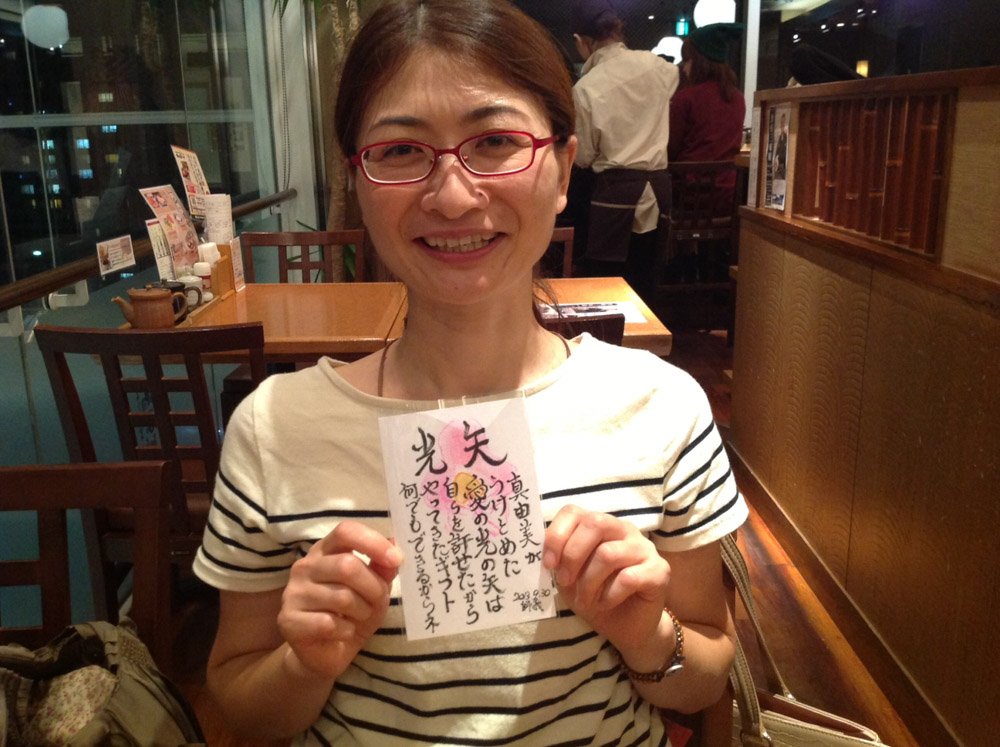 矢
光
真由美が
うけとめた
愛の光の矢は
自らを許せたから
やってきたギフト
何でもできるからネ
2013.9.30